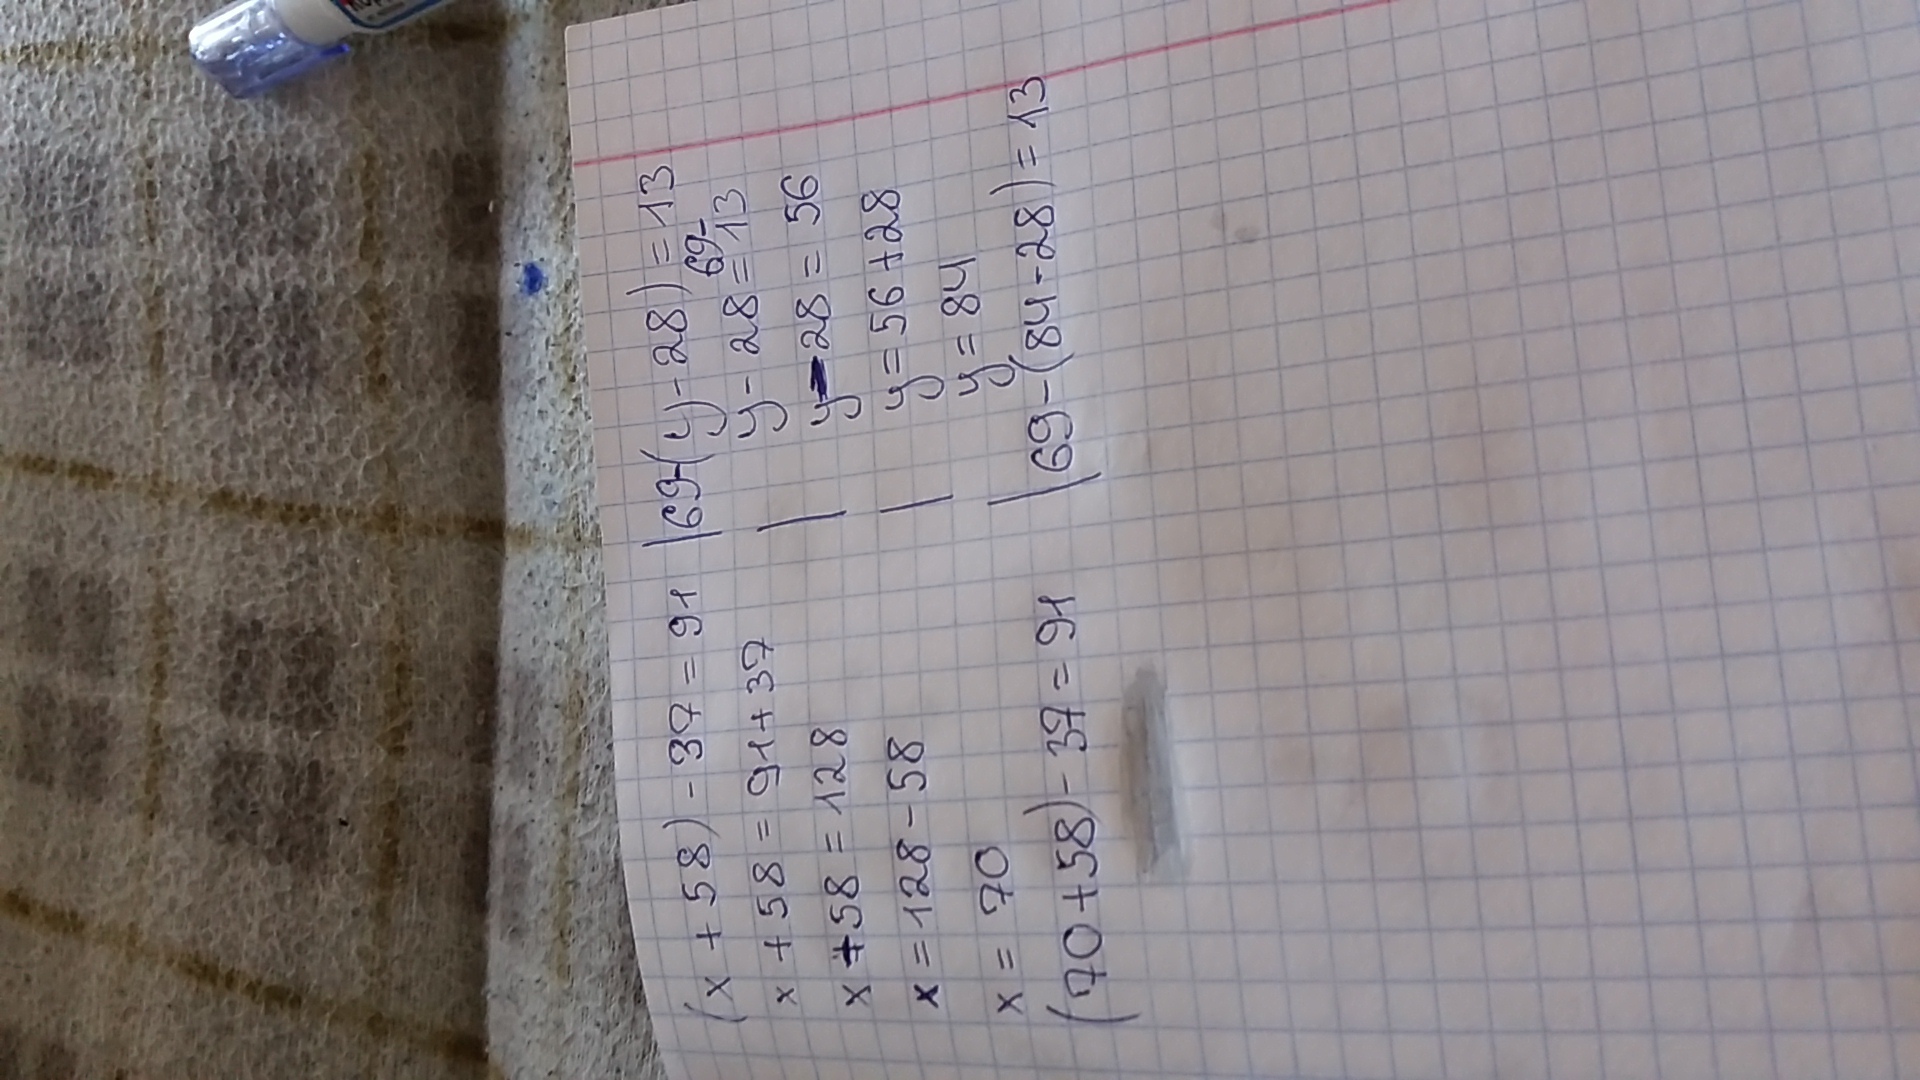 (x + 58) - 37 = 91
x + 58 = 91 + 37
x + 58 = 128
x = 128 - 58
x = 70
(70 + 58) - 37 = 91
69 - (y - 28) = 13
y - 28 = 69 - 13
y - 28 = 56
y = 56 + 28
y = 84
69 - (84 - 28) = 13